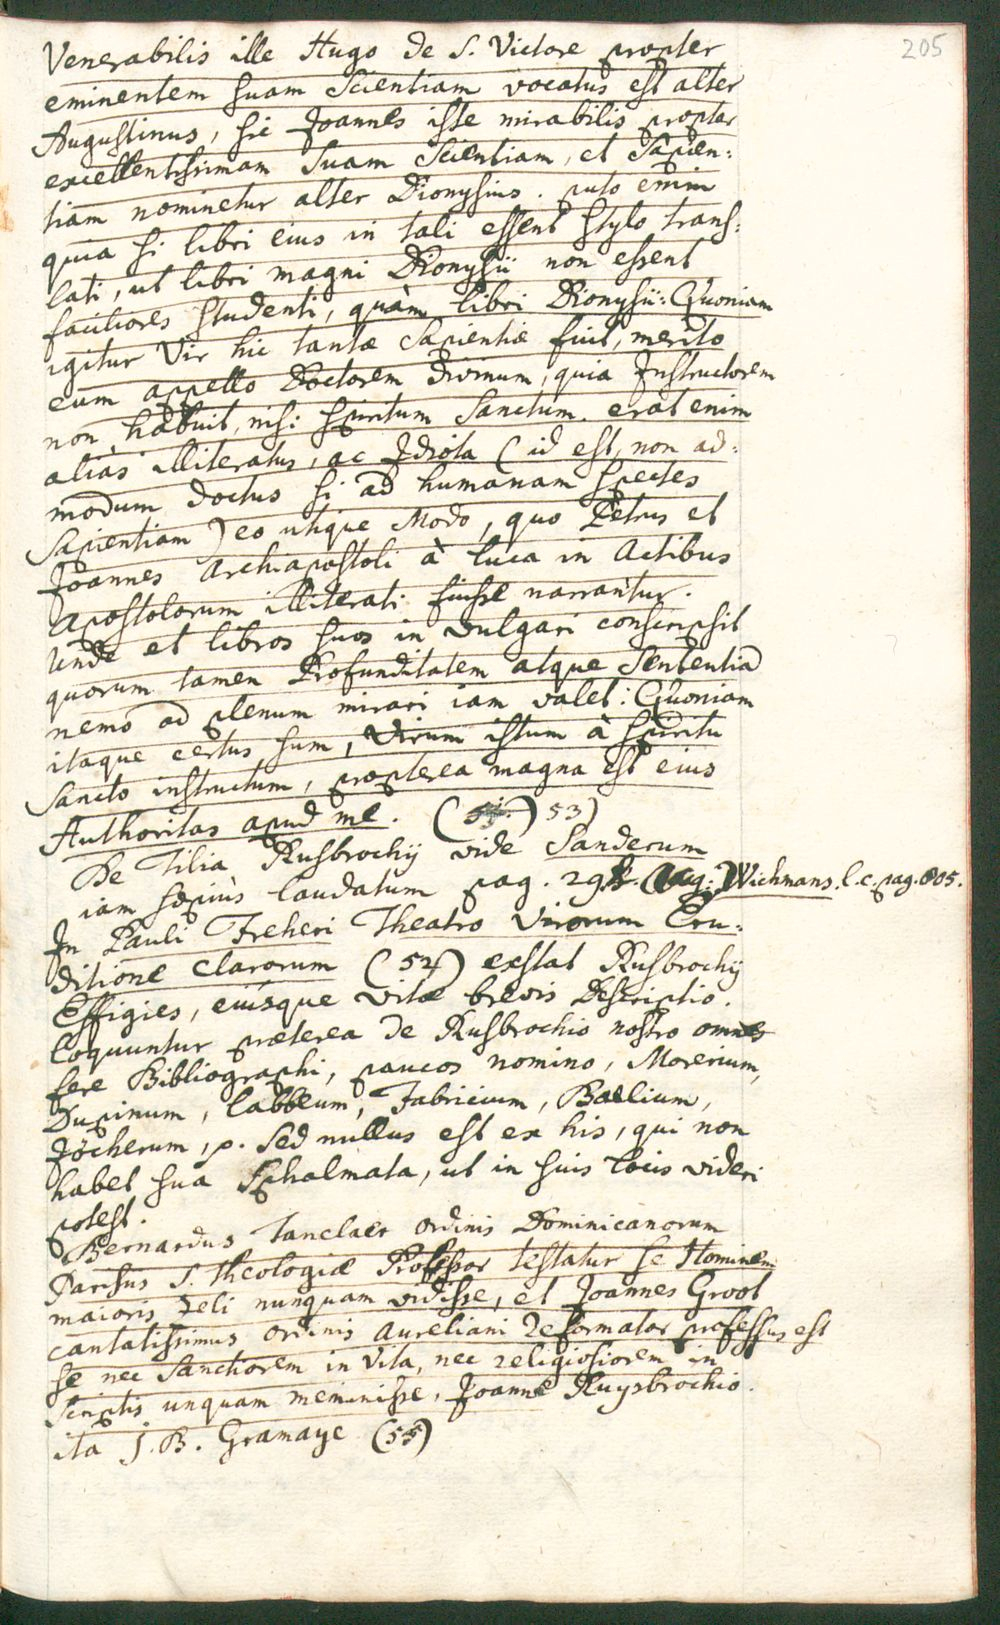 205
Venerabilis ille Hugo de S. Victore propter
eminentem suam Scientiam vocatus est alter
Augustinus, sic Joannes iste mirabilis propter
excellentissimam suam Scientiam, et Sapien:
tiam nominetur alter Dionysius. puto enim
quia si libri eius in tali essent stylo trans:
lati, ut libri magni Dionysii non essent
faciliores studenti, quàm libri Dionysii: Quoniam
igitur Vir hic tantæ Sapientiæ fuit, merito
eum appello Doctorem divinum, quia Instructorem
non habuit, nisi Spiritum Sanctum. erat enim
alias illiteratus, ac Idiota (id est, non ad:
modum doctus si ad humanam spectes
Sapientiam) eo utique Modo, quo Petrus et
Joannes Archiapostoli à Luca in Actibus
Apostolorum illiterati fuisse narrantur.
Unde et libros suos in vulgari conscripsit
quorum tamen Profunditatem atque Sententia
nemo ad plenum mirari iam valet: Quoniam
itaque certus sum, Virum istum à Spiritu
Sancto instructum, propterea magna est eius
Authoritas apud me. 53)
De Tilia Rusbrochij vide Sanderum
iam sæpius laudatum pag. 298. Aug: Wichmans. l.c. pag. 805.
In Pauli Freheri Theatro Virorum Eru:
ditione clarorum (54) exstat Rusbrochij
Effigies, eiusque Vitæ brevis Descriptio.
Loquuntur præterea de Rusbrochio nostro omnes
fere Bibliographi, paucos nomino, Morerium,
Dupinum, Labbeum, Fabricium, Baelium,
Jöcherum, p. Sed nullus est ex his, qui non
habet sua Sphalmata, ut in suis locis videri
potest.
Bernardus Tanclaer Ordinis Dominicanorum
Parisus S. Theologiæ Professor testatur se Hominem
maioris Zeli nunquam vidisse, et Joannes Groot
cantatissimus Ordinis Aureliani Reformator professus est
se nec Sanctiorem in Vita, nec religiosiorem in
Scriptis unquam meminisse, Joanne Ruysbrochio.
ita J. B. Gramaye (55)